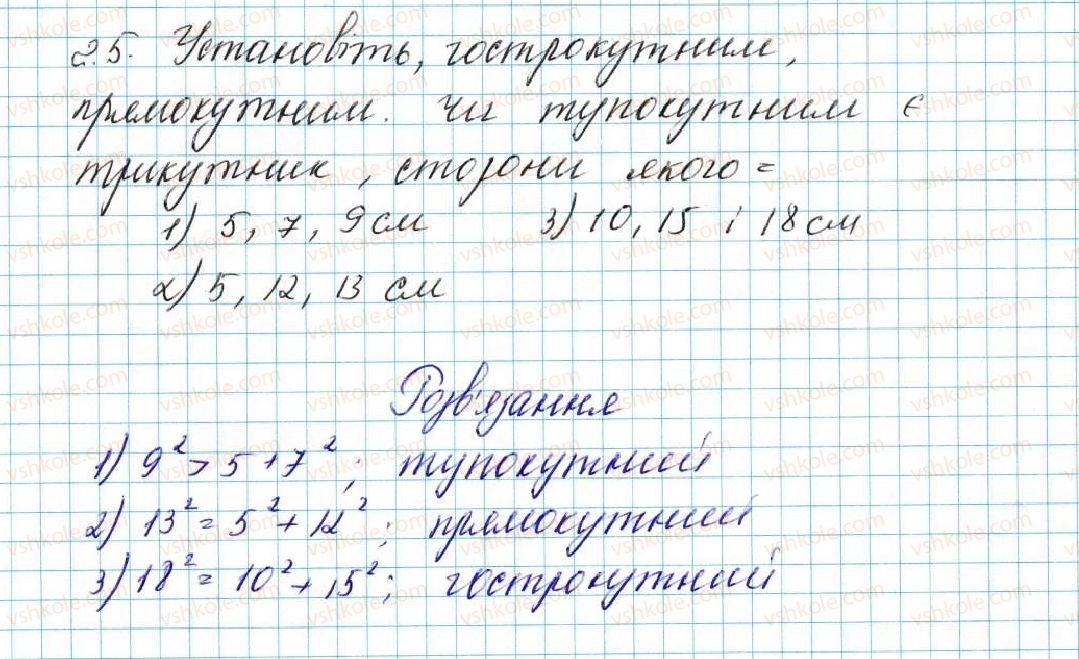 2.5. Установіть, гострокутним,
прямокутним. чи тупокутним є
трикутник, сторони якого =
1) 5, 7, 9 см 3) 10, 15 і 18 см
2) 5, 12, 13 см
Розв'язання
1) 9² > 5 + 7²; тупокутний
2) 13² = 5² + 12²; прямокутний
3) 18² = 10² + 15²; гострокутний
vshkole.com